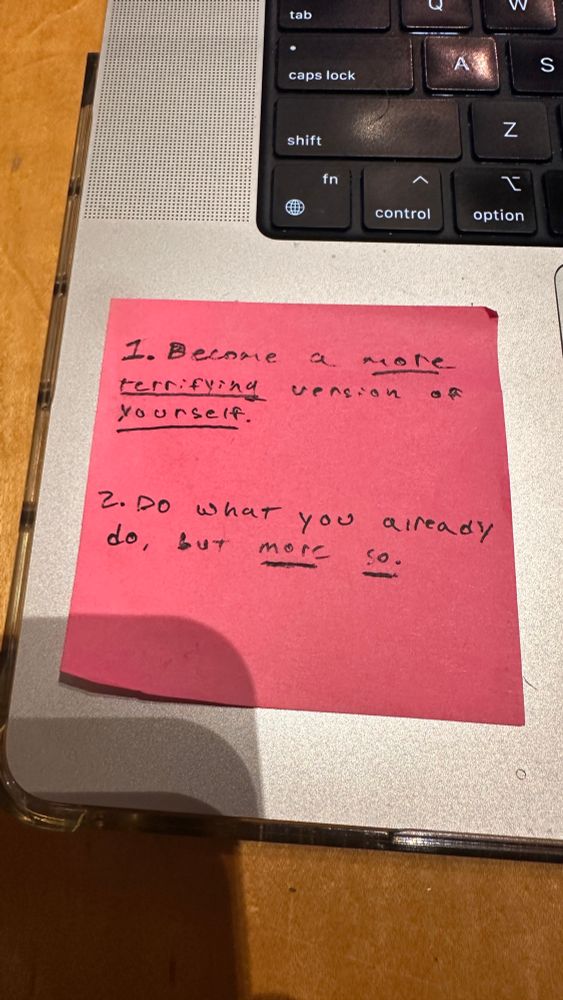 tab
Q
W
caps lock
A
S
shift
Z
fn
control
option
1. Become a more
terrifying version of
yourself.
2. Do what you already
do, but more so.